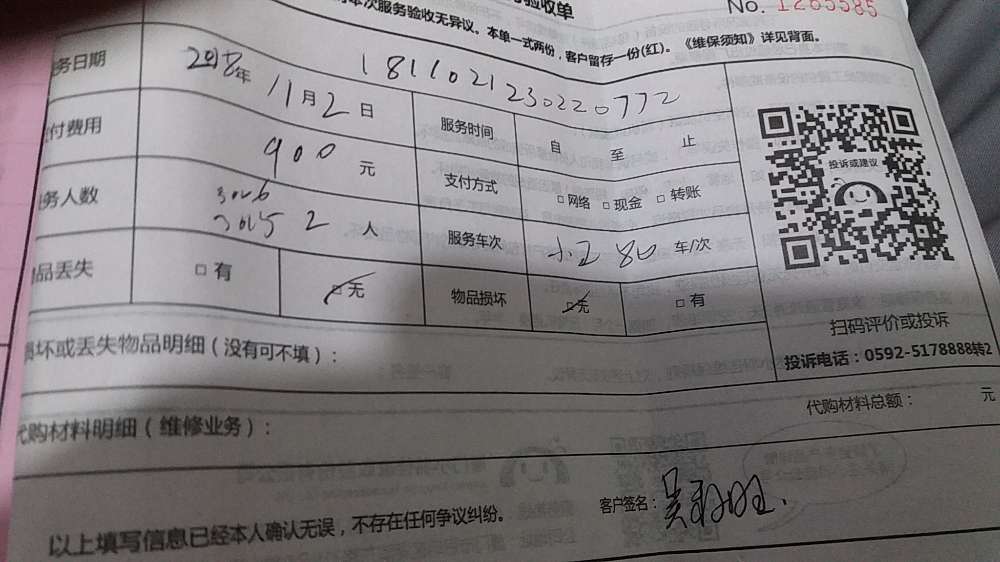 验收单
No. 1285585
本次服务验收无异议。本单一式两份，客户留存一份(红)。《维保须知》详见背面。
1811021230220772
务日期 2018年11月2日 服务时间 自 至 止
付费用 900 元 支付方式 □网络 □现金 □转账
务人数 3026 3015 2 人 服务车次 小工 80 车/次
品丢失 □有 □无 物品损坏 □无 □有
投诉或建议
扫码评价或投诉
投诉电话：0592-5178888转2
坏或丢失物品明细（没有可不填）：
代购材料明细（维修业务）： 代购材料总额： 元
以上填写信息已经本人确认无误，不存在任何争议纠纷。 客户签名：